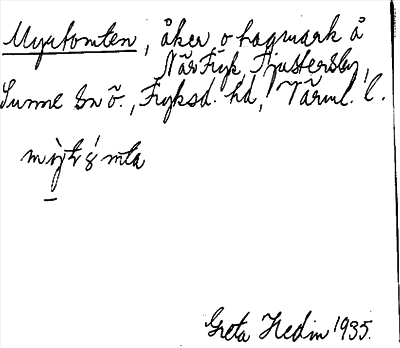 Myrtomten, åker o hagmark å
När Fryk. Fjustersby,
Sunne sn ö., Fryksd. hd, Värml. l.
Greta Hedin 1935.